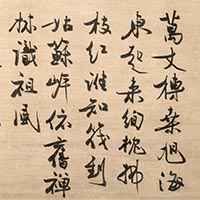 萬丈榑桑旭海
東起来絢拂
枝紅誰知筏到
姑蘇岸依舊禅
林識祖風